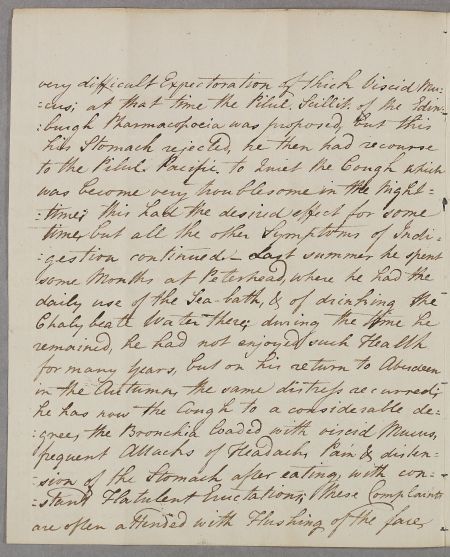 very difficult Expectoration of thick Viscid Mu-
-cus; at that time the Pilul: Scillit. of the Edin-
-burgh Pharmacopœia was proposed, but this
his Stomach rejected, he then had recourse
to the Pilul. Pacific. to Quiet the Cough which
was become very troublesome in the Night-
-time; this had the desired effect for some
time, but all the other Symptoms of Indi-
-gestion continued – Last summer he spent
some Months at Peterhead, where he had the
daily use of the Sea-bath, & of drinking the
Chalybeate Water there; during the time he
remained, he had not enjoyed such Health
for many Years, but on his return to Aberdeen
in the Autumn, the same distress recurred;
he has now the Cough to a considerable de-
-gree, the Bronchia loaded with viscid Mucus,
frequent Attacks of Headach, Pain & disten-
-sion of the Stomach after eating, with con-
-stant Flatulent Eructations; These Complaints
are often attended with Flushing of the face,